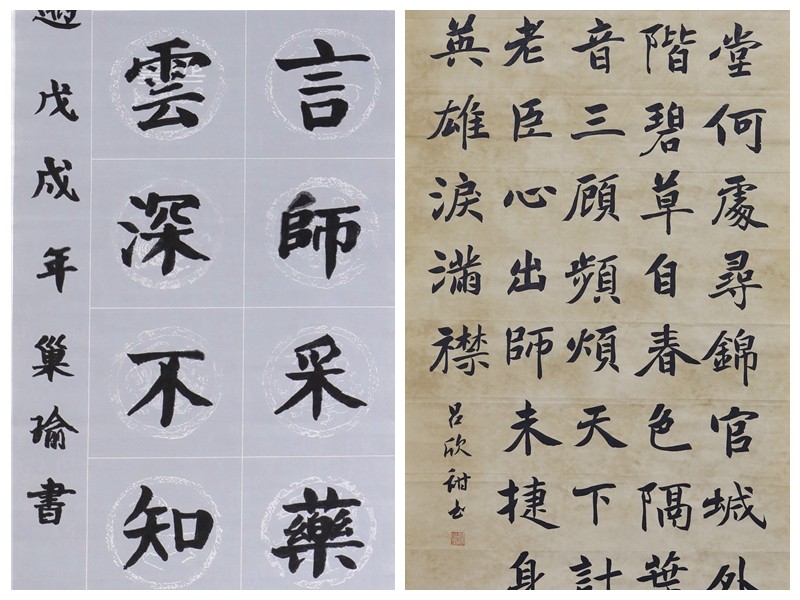 言師采藥
雲深不知
戊戌年巢瑜書
堂何處尋錦官城外
階碧草自春色隔葉
音三顧頻煩天下計
老臣心出師未捷身
英雄淚滿襟
呂欣